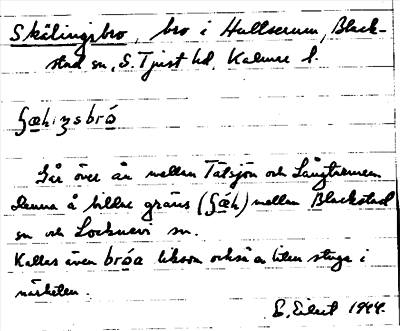 Skälingsbro, bro i Hullserum, Black-
stad sn, S. Tjust hd, Kalmar l.
Går över ån mellan Tälsjön och Långträmmen
Denna å bildar gräns mellan Blackstad
sn och Locknevi sn.
Kallas även bróa liksom också en liten stuga i
närheten.
E. Eilert 1944.